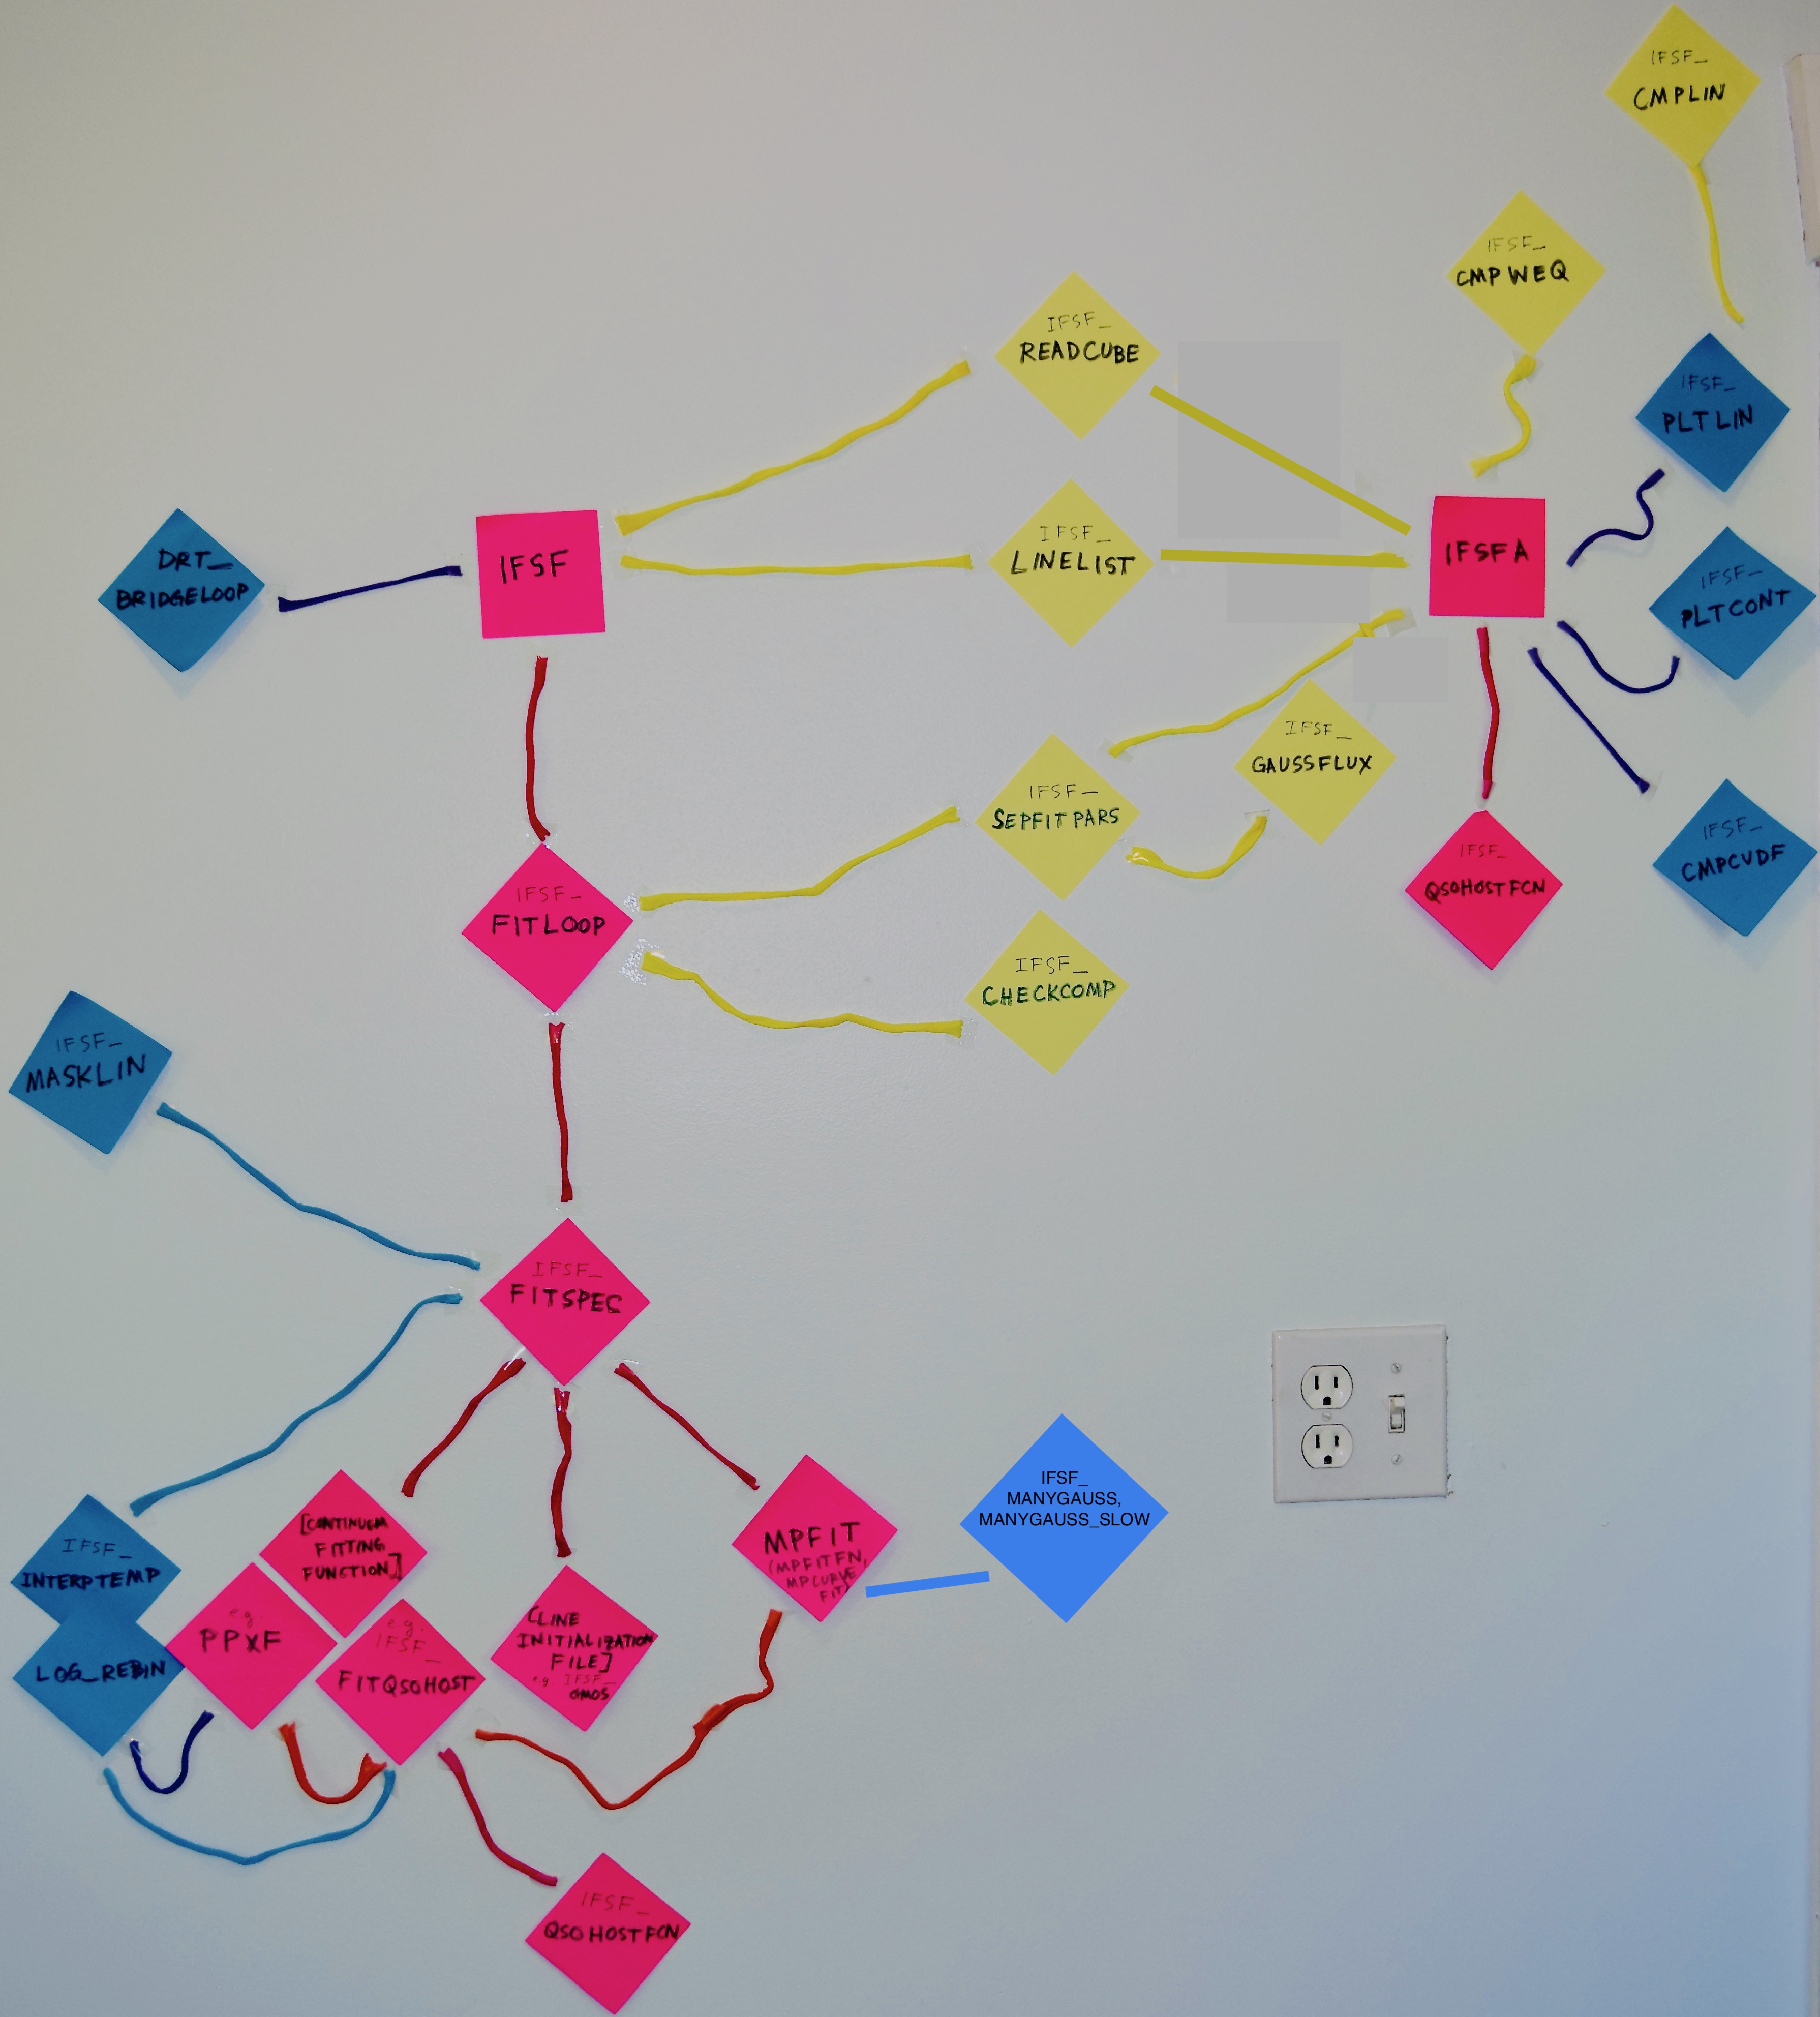 IFSF_
CMPLIN
IFSF_
CMPWEQ
IFSF_
READCUBE
IFSF_
PLTLIN
DRT_
BRIDGELOOP
IFSF
IFSF_
LINELIST
IFSFA
IFSF_
PLTCONT
IFSF_
GAUSSFLUX
IFSF_
SEPFITPARS
IFSF_
CMPCVDF
IFSF_
QSOHOSTFCN
IFSF_
FITLOOP
IFSF_
CHECKCOMP
IFSF_
MASKLIN
IFSF_
FITSPEC
IFSF_
MANYGAUSS,
MANYGAUSS_SLOW
MPFIT
(MPFITFN,
MPCURVE
FIT)
[CONTINUUM
FITTING
FUNCTION]
IFSF_
INTERPTEMP
LOG_REBIN
e.g.
PPXF
e.g.
IFSF_
FITQSOHOST
[LINE
INITIALIZATION
FILE]
e.g. IFSF_
GMOS
IFSF_
QSOHOSTFCN